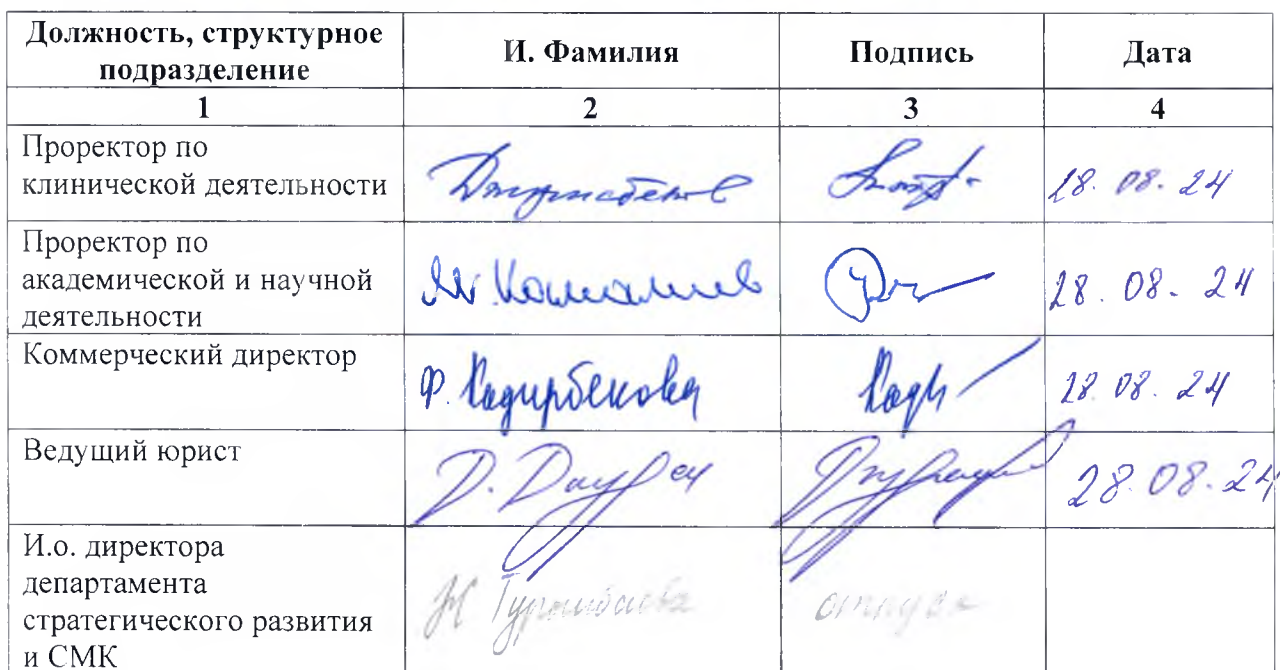 Должность, структурное
подразделение
И. Фамилия
Подпись
Дата
1
2
3
4
Проректор по
клинической деятельности
28.08.24
Проректор по
академической и научной
деятельности
28.08.24
Коммерческий директор
Ф. Кадирбекова
28.08.24
Ведущий юрист
Д. Даурен
28.08.24
И.о. директора
департамента
стратегического развития
и СМК
отпуск